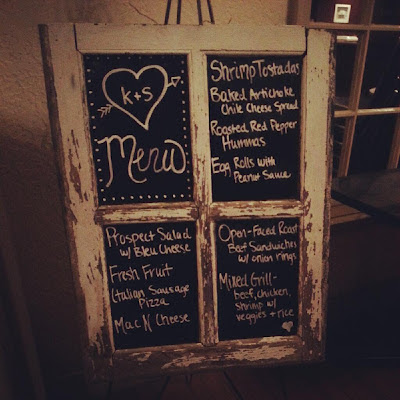 K+S
Menu
Shrimp Tostadas
Baked Artichoke
Chile Cheese Spread
Roasted Red Pepper
Hummas
Egg Rolls with
Peanut Sauce
Prospect Salad
w/ Bleu Cheese
Fresh Fruit
Italian Sausage
Pizza
Mac N Cheese
Open-Faced Roast
Beef Sandwiches
w/ onion rings
Mixed Grill-
beef, chicken,
shrimp w/
veggies + rice